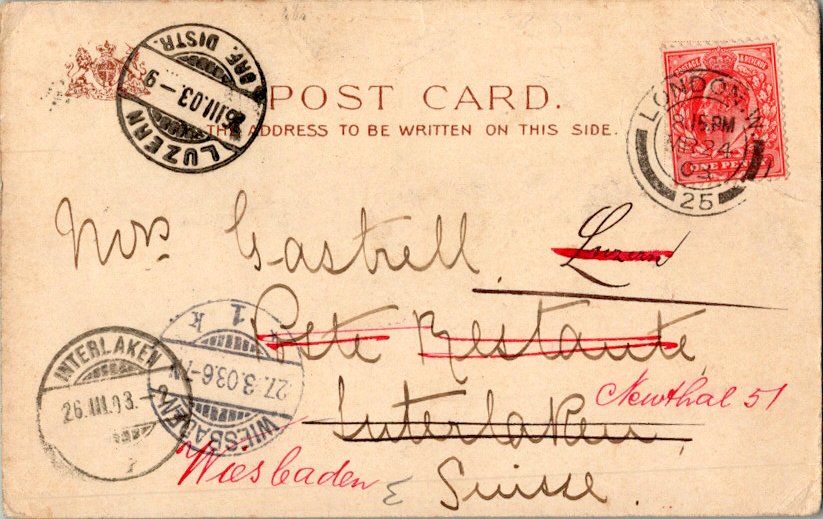 POST CARD.
THE ADDRESS TO BE WRITTEN ON THIS SIDE.
LUZERN
BRF. DISTR.
26.III.03-9
POSTAGE & REVENUE
ONE PENNY
LONDON. W.
8.15 PM
MR 24
03
25
Mrs. Gastrell
Luzern
Poste Restante,
Interlaken,
Neuthal 51
Wiesbaden
Suisse.
INTERLAKEN
26.III.03.-
WIESBADEN
27.3.03.6-7
1
k